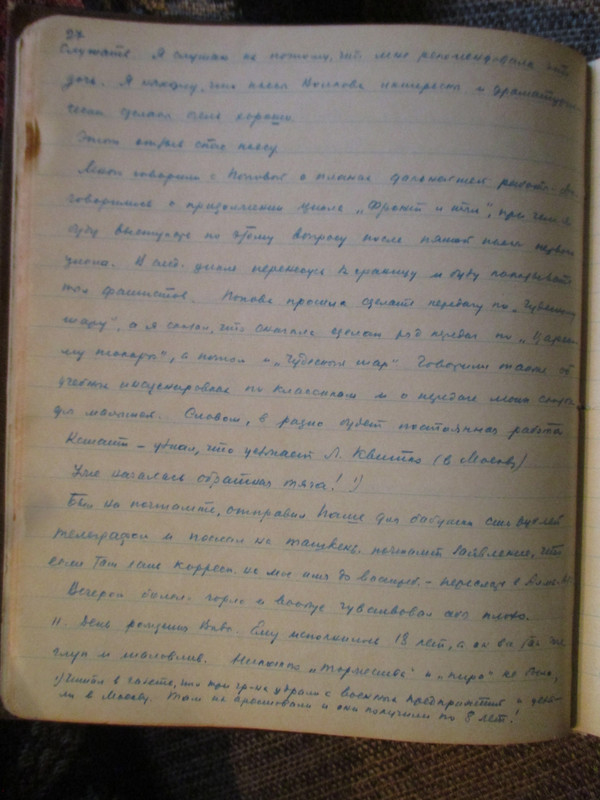 27
слушать. Я слушал не потому, что мне рекомендовала
дочь. Я нахожу, что пьеса Волкова интересна и драматурги-
чески сделана очень хорошо.
Этот отрыв спас пьесу.
Много говорили с Поповой о планах дальнейшей работы.
говорились о продолжении цикла „Фронт и тыл", при чем я
буду выступать по этому вопросу после пятой пьесы первого
цикла. В след. цикле переношусь за границу и буду показывать
там фашистов. Попова просила сделать передачу по „Чудесному
шару", а я сказал, что сначала сделаю ряд передач по „Царско-
му токарю", а потом и „Чудесный шар". Говорили также об
учебных инсценировках по классикам и о передаче моих
для малышей. Словом, в радио будет постоянная работа.
Кстати – узнал, что уезжает Л. Квитко (в Москву)
Уже началась обратная тяга! ¹)
Был на почтамте, отправил Паше для бабушки сто рублей
телеграфом и послал на ташкент. почтамт заявление, что
если там есть корресп. на мое имя до востреб. – пересылать в Алма-Ата
Вечером болело горло и вообще чувствовал себя плохо.
11. День рождения Вивы. Ему исполнилось 13 лет, а он все так же
глуп и шаловлив. Никакого „торжества" и „пира" не было,
¹) Читал в газете, что три гр-на удрали с военных предприятий и уеха-
ли в Москву. Там их арестовали и они получили по 8 лет!